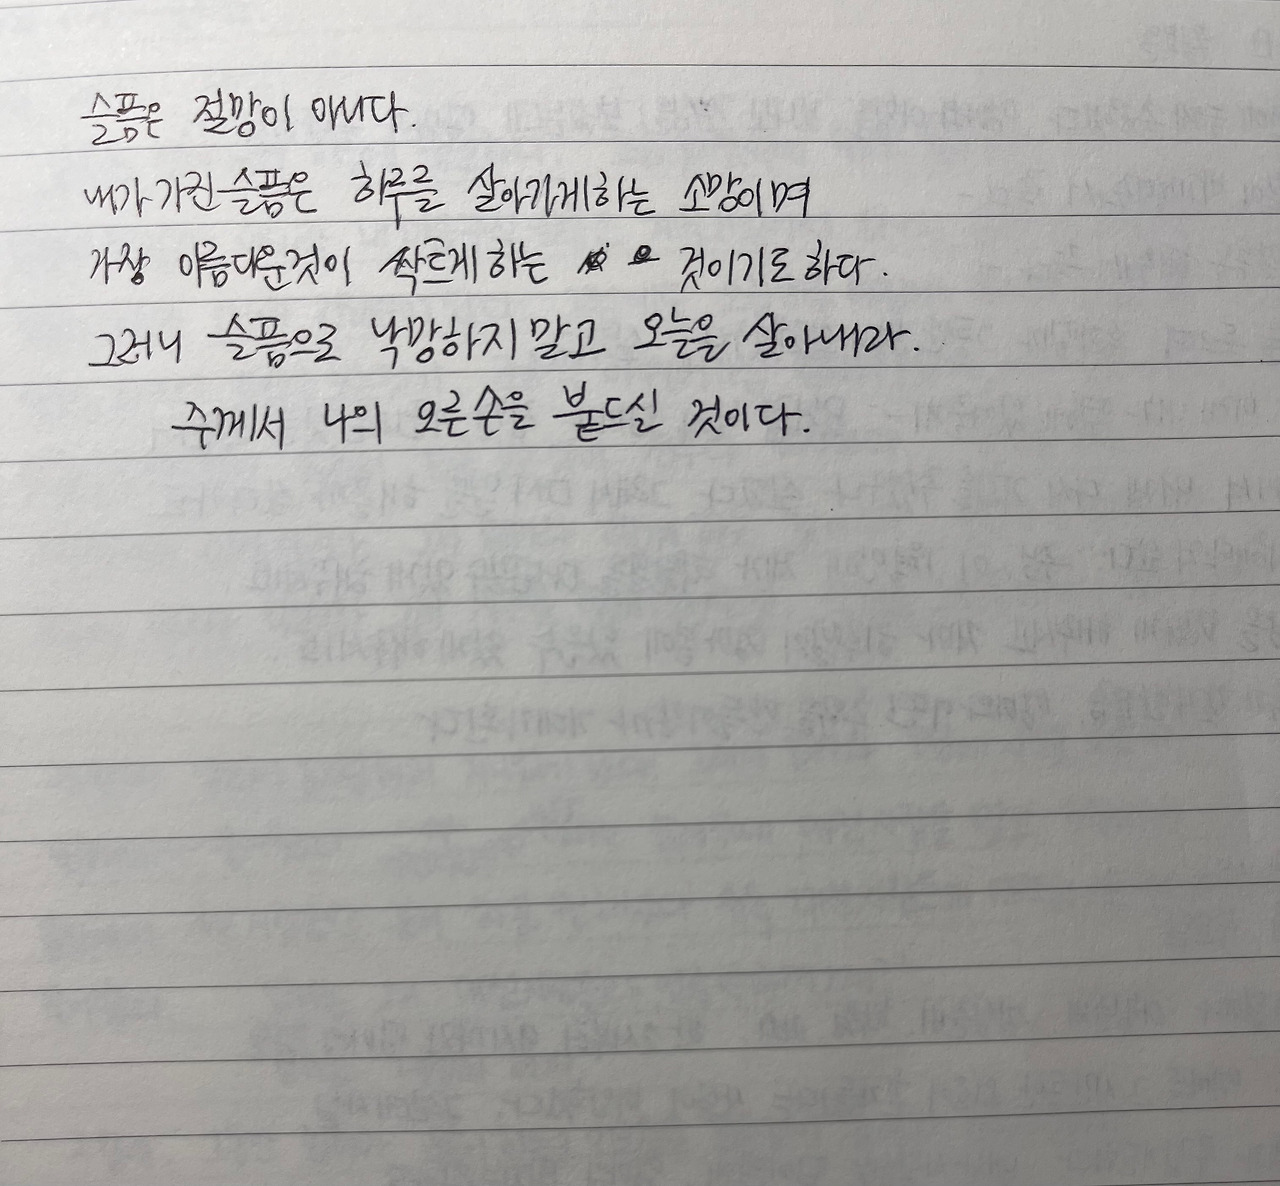 슬픔은 절망이 아니다.
내가 가진 슬픔은 하루를 살아가게하는 소망이며
가장 아름다운것이 싹트게 하는 것이기도하다.
그러니 슬픔으로 낙망하지 말고 오늘을 살아내라.
주께서 나의 오른손을 붙드실 것이다.